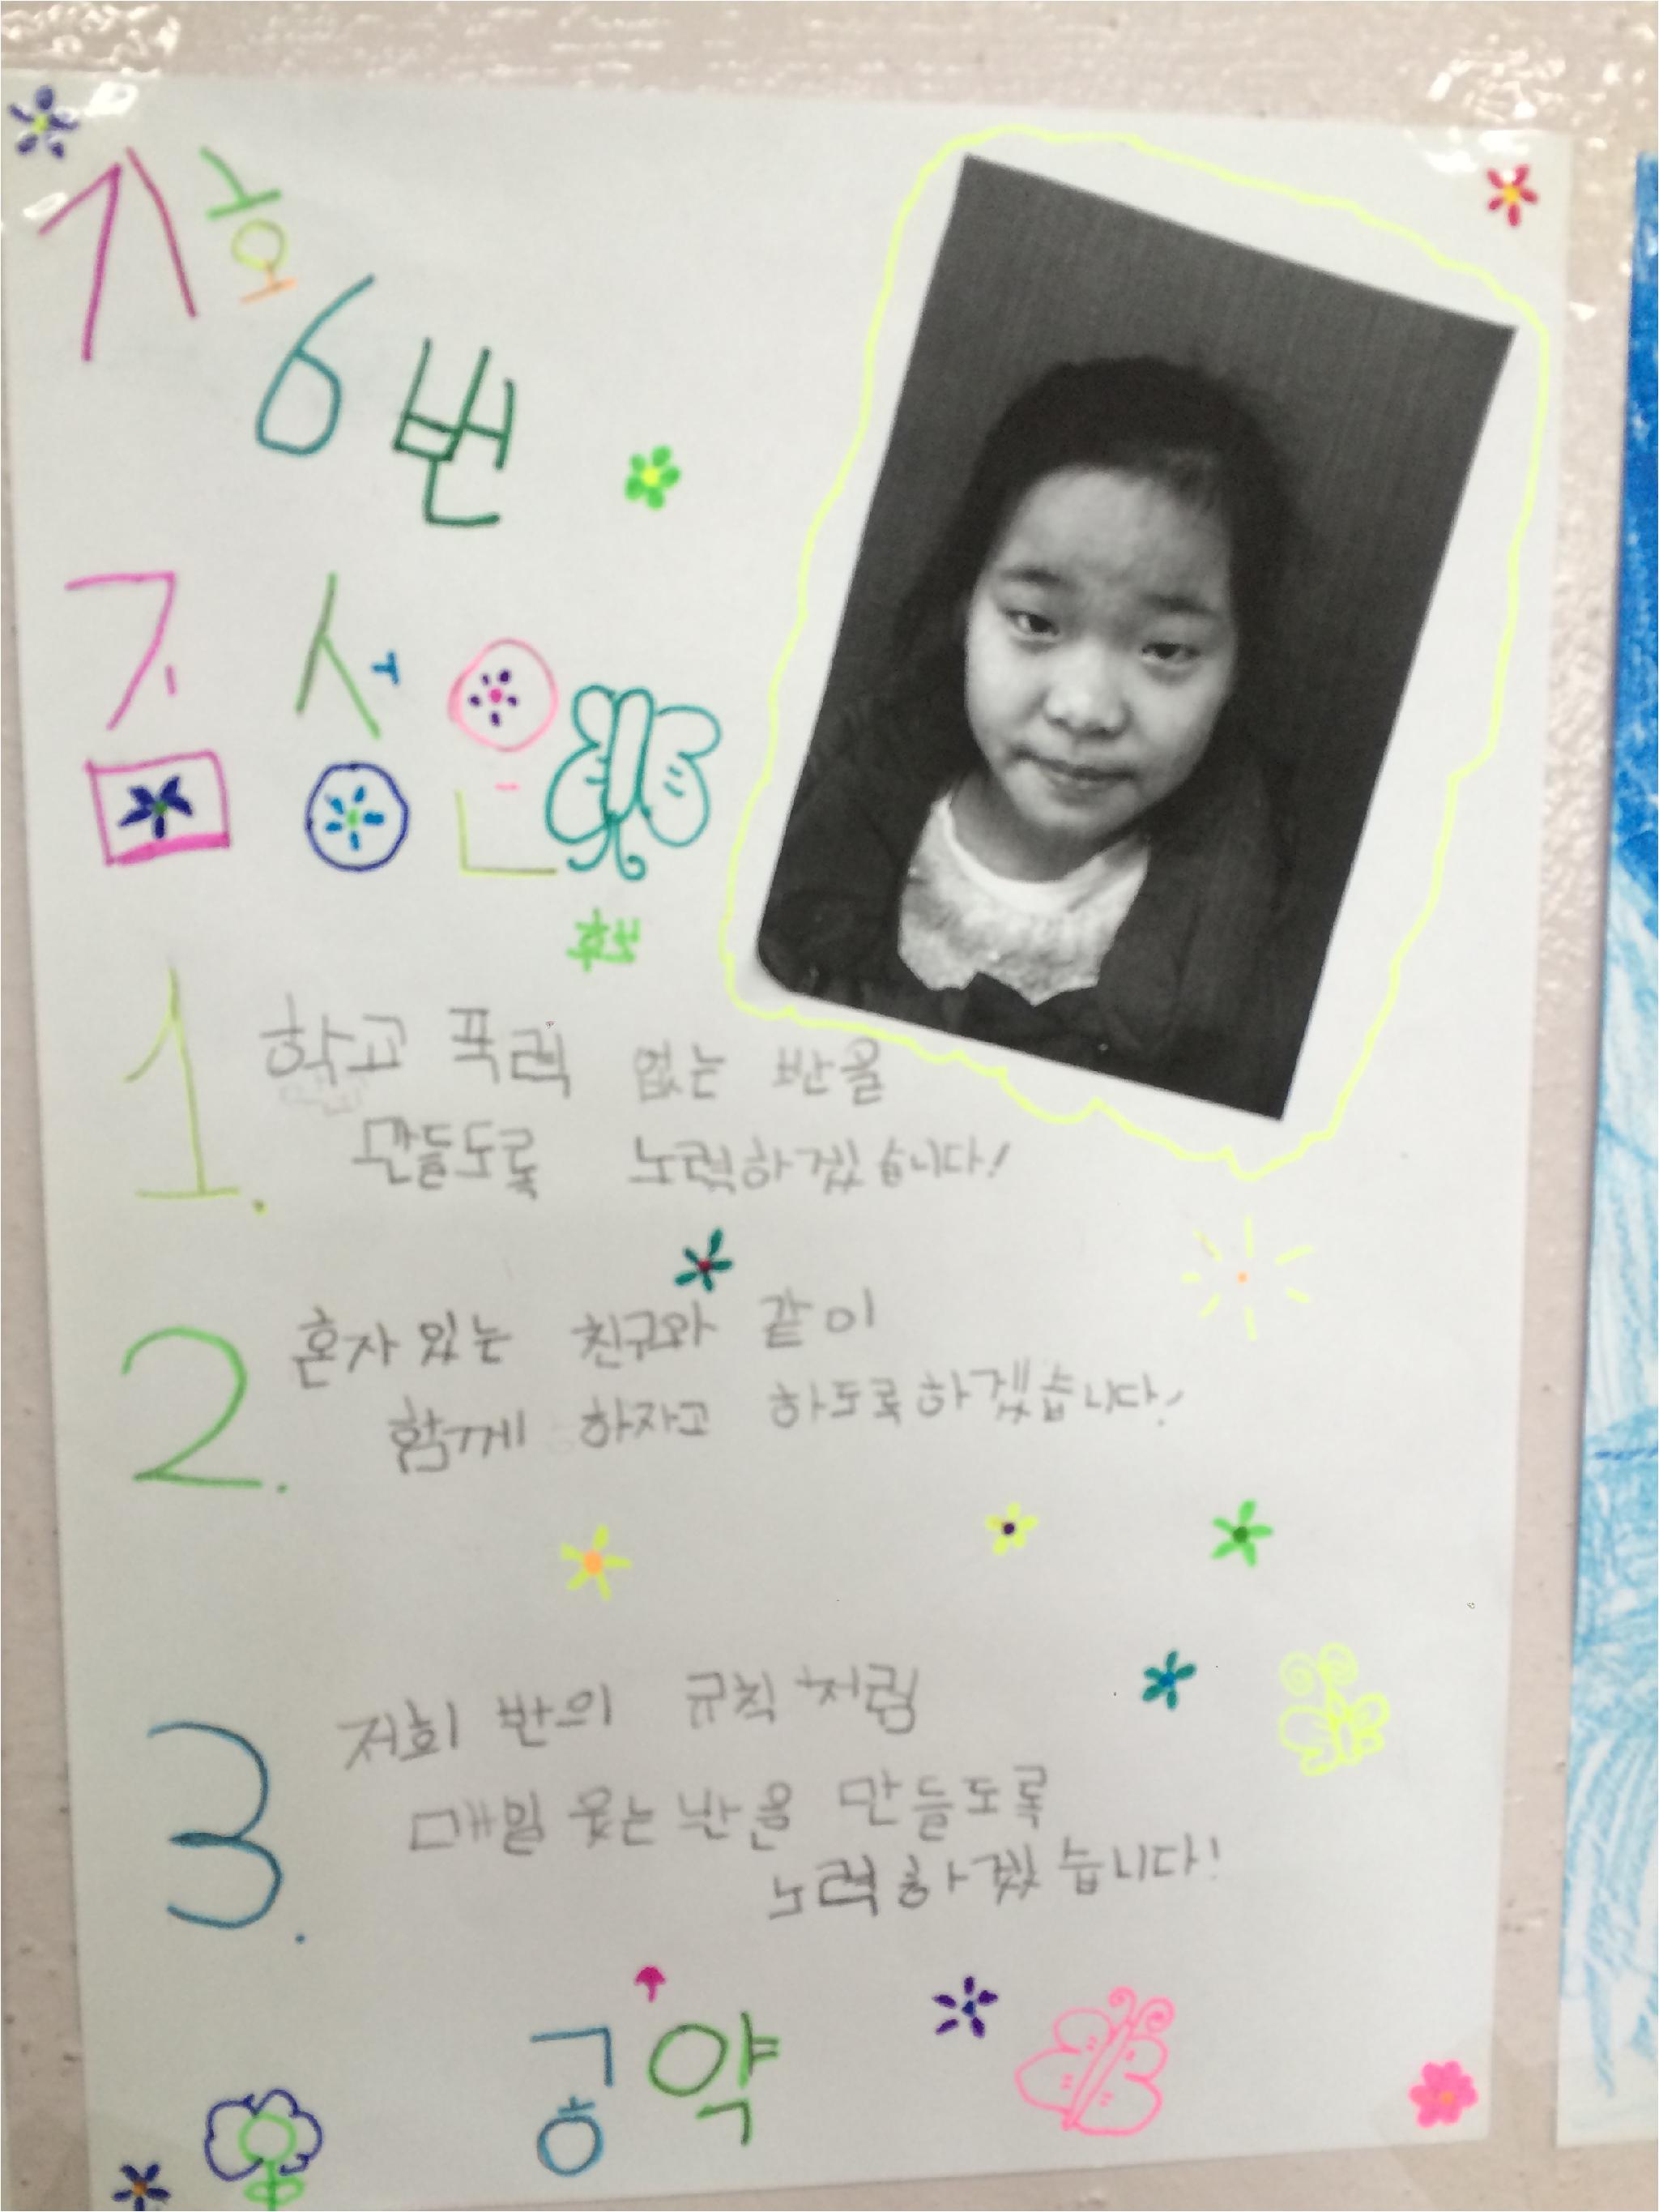 기호
6번
김성은
1. 학고 폭력 없는 반을
만들도록 노력하겠습니다!
2. 혼자 있는 친구와 같이
함께 하자고 하도록하겠습니다!
3. 저희 반의 규칙 처럼
매일 웃는 반을 만들도록
노력하겠습니다!
공약